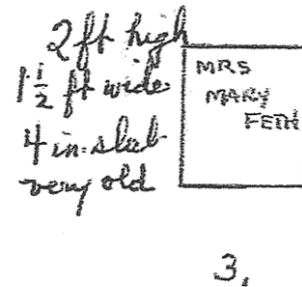 2 ft high
1 1/2 ft wide
4 in. slab
very old
MRS
MARY
FETH
3.